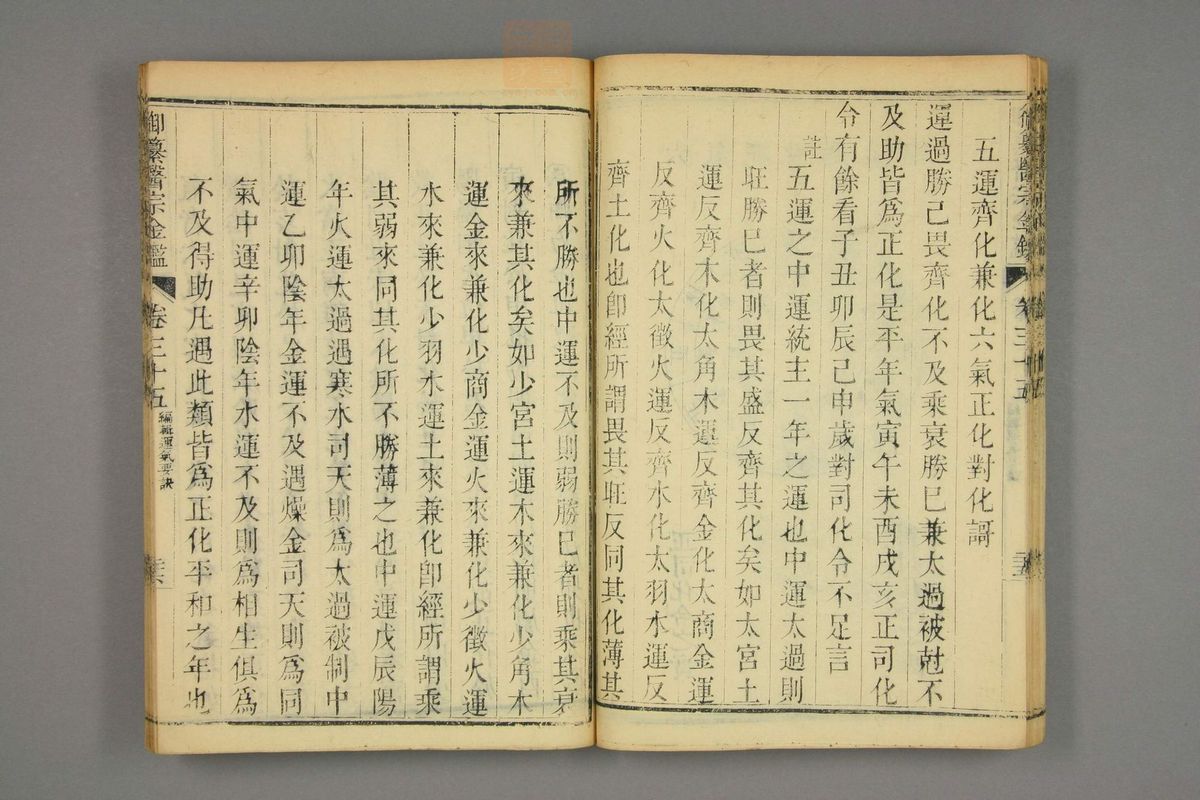 五運齊化兼化六氣正化對化謌
運過勝己畏齊化不及乘衰勝已兼太過被尅不
及助皆爲正化是平年氣寅午未酉戌亥正司化
令有餘看子丑卯辰己申歲對司化令不足言
註五運之中運統主一年之運也中運太過則
旺勝已者則畏其盛反齊其化矣如太宮土
運反齊木化太角木運反齊金化太商金運
反齊火化太徵火運反齊水化太羽水運反
齊土化也卽經所謂畏其旺反同其化薄其
所不勝也中運不及則弱勝已者則乘其衰
來兼其化矣如少宮土運木來兼化少角木
運金來兼化少商金運火來兼化少徵火運
水來兼化少羽水運土來兼化卽經所謂乘
其弱來同其化所不勝薄之也中運戊辰陽
年火運太過遇寒水司天則爲太過被制中
運乙卯陰年金運不及遇燥金司天則爲同
氣中運辛卯陰年水運不及則爲相生俱爲
不及得助凡遇此類皆爲正化平和之年也
御纂醫宗金鑑 卷三十五 編輯運氣要訣